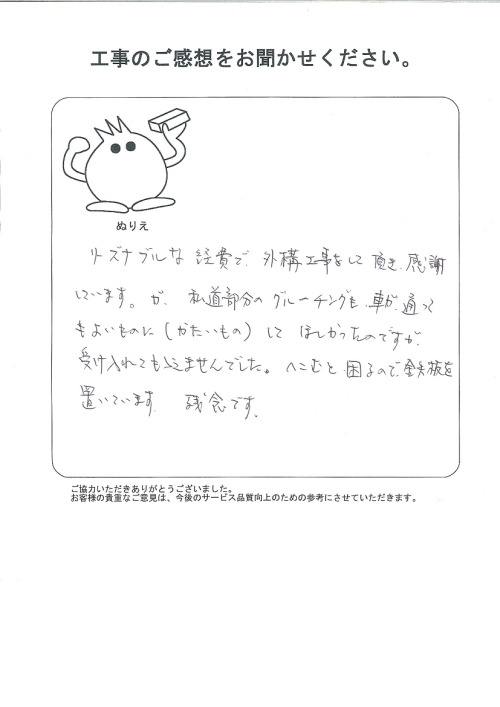 工事のご感想をお聞かせください。
ぬりえ
リーズナブルな経費で、外構工事をして頂き、感謝
しています。が、私道部分のグルーチングも、車が通って
もよいものに（かたいもの）して ほしかったのですが、
受け入れてもらえませんでした。へこむと困るので、鉄板を
置いています 残念です。
ご協力いただきありがとうございました。
お客様の貴重なご意見は、今後のサービス品質向上のための参考にさせていただきます。